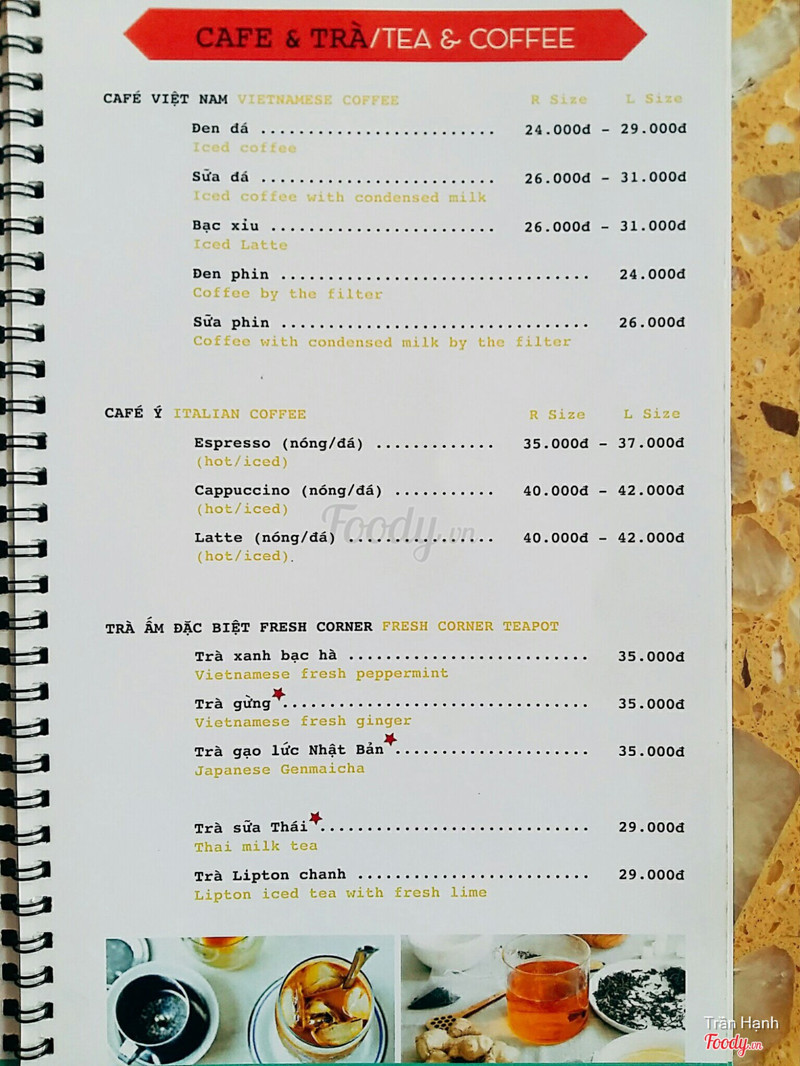 CAFE & TRÀ/TEA & COFFEE
CAFÉ VIỆT NAM VIETNAMESE COFFEE R Size L Size
Đen đá ......................... 24.000đ - 29.000đ
Iced coffee
Sữa đá ......................... 26.000đ - 31.000đ
Iced coffee with condensed milk
Bạc xỉu ........................ 26.000đ - 31.000đ
Iced Latte
Đen phin ................................. 24.000đ
Coffee by the filter
Sữa phin ................................. 26.000đ
Coffee with condensed milk by the filter
CAFÉ Ý ITALIAN COFFEE R Size L Size
Espresso (nóng/đá) ............. 35.000đ - 37.000đ
(hot/iced)
Cappuccino (nóng/đá) ........... 40.000đ - 42.000đ
(hot/iced)
Latte (nóng/đá) ................ 40.000đ - 42.000đ
(hot/iced).
Foody.vn
TRÀ ẤM ĐẶC BIỆT FRESH CORNER FRESH CORNER TEAPOT
Trà xanh bạc hà .......................... 35.000đ
Vietnamese fresh peppermint
Trà gừng ................................. 35.000đ
Vietnamese fresh ginger
Trà gạo lức Nhật Bản ..................... 35.000đ
Japanese Genmaicha
Trà sữa Thái ............................. 29.000đ
Thai milk tea
Trà Lipton chanh ......................... 29.000đ
Lipton iced tea with fresh lime
Trần Hạnh
Foody.vn